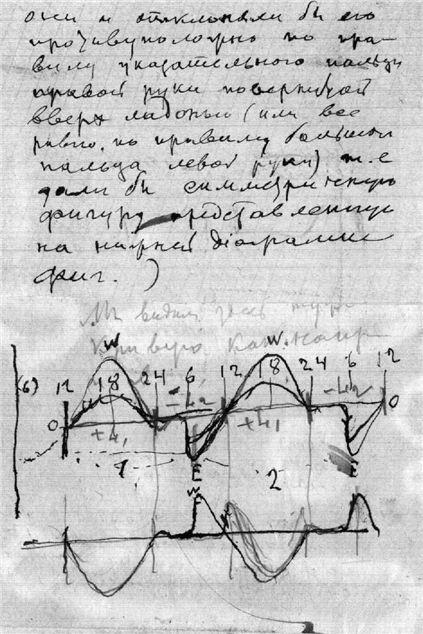 они и отклоняли бы его
противуположно по пра-
вилу указательного пальца
правой руки повернутой
вверх ладонью (или все
равно, по правилу большого
пальца левой руки) т.е
дали бы симметрическую
фигуру представленную
на нижней діаграмме
фиг. )
Мы видим здесь
W W.
(6) 12 18 24 6 12 18 24 6 12
0 0
+4, +4,
1, E 2 E
W